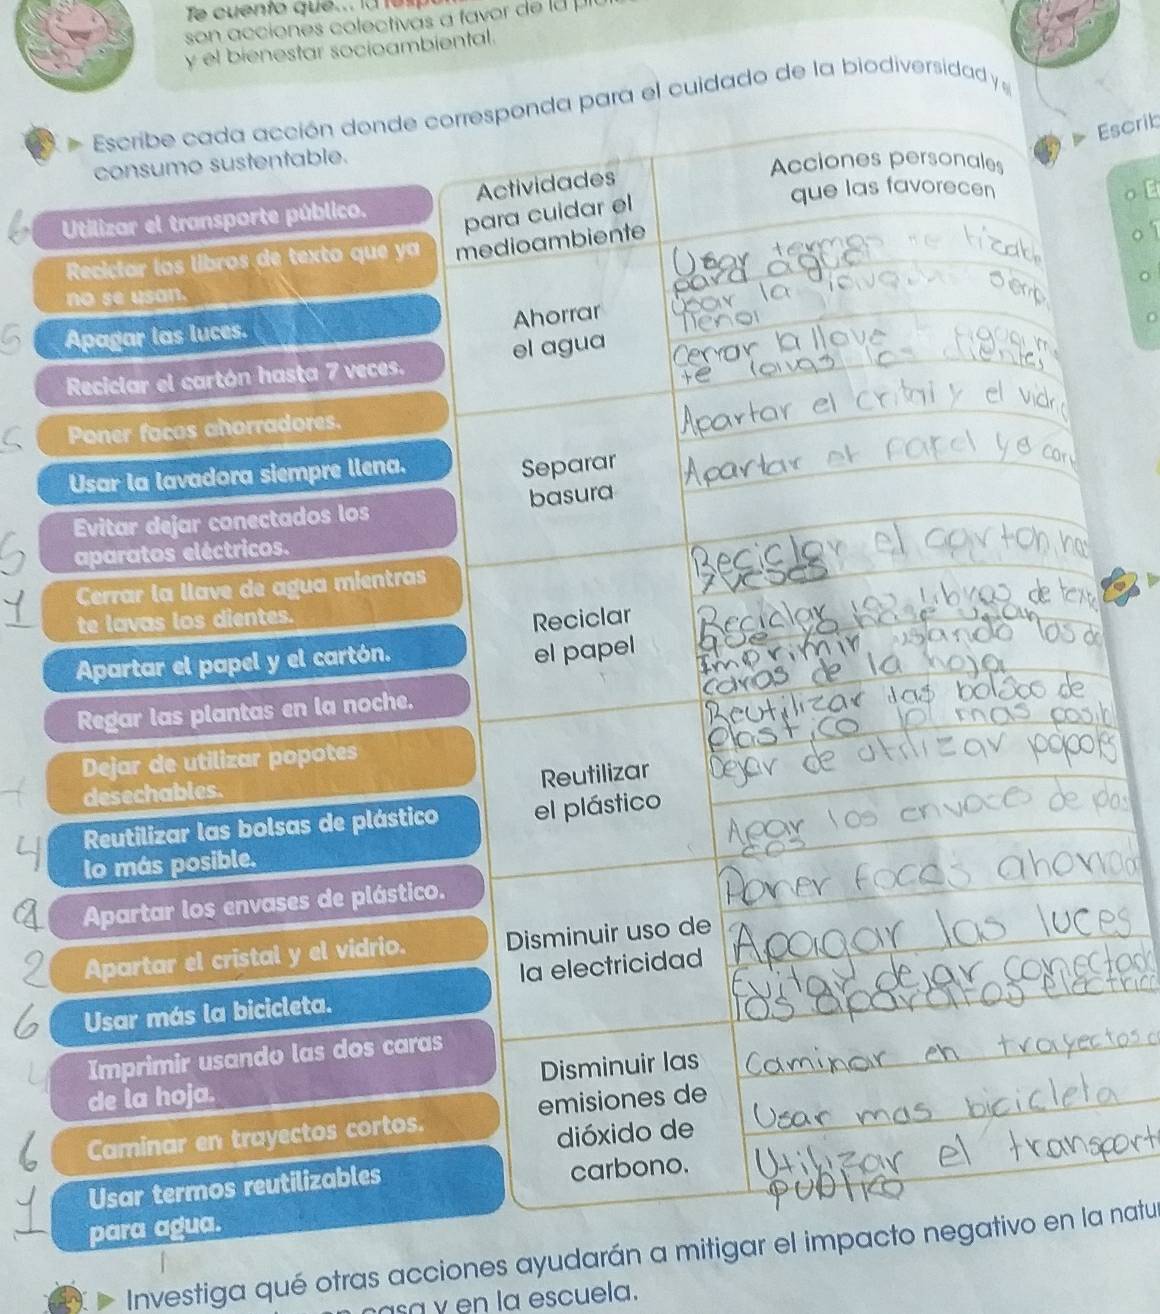 Te cuento que... la
son acciones colectivas a favor de la
y el bienestar socioambiental.
Escribe cada acción donde corresponda para el cuidado de la biodiversidad y
consumo sustentable.
Escrib
Utilizar el transporte público.
Reciclar los libros de texto que ya
no se usan.
5 Apagar las luces.
Reciclar el cartón hasta 7 veces.
Poner focos ahorradores.
Usar la lavadora siempre llena.
Evitar dejar conectados los
5 aparatos eléctricos.
1 Cerrar la llave de agua mientras
te lavas los dientes.
Apartar el papel y el cartón.
Regar las plantas en la noche.
Dejar de utilizar popotes
desechables.
4 Reutilizar las bolsas de plástico
lo más posible.
Apartar los envases de plástico.
2 Apartar el cristal y el vidrio.
6 Usar más la bicicleta.
4 Imprimir usando las dos caras
de la hoja.
6 Caminar en trayectos cortos.
1 Usar termos reutilizables
para agua.
Actividades
para cuidar el
medioambiente
Acciones personales
que las favorecen
Ahorrar
el agua
Usar termos
para agua
Usar la
llena
Cerrar la llave
te lavas los dientes
Separar
basura
Apartar el y el vidr
Apartar papel y
Reciclar
el papel
Reciclar el carton
Reciclar libros de text
imprimir usando las d
caras de la hoja
Reutilizar
el plástico
Beutilizar las bolsas de
plastico lo mas posib
Dejar de utilizar popots
Apar los envaces de
Disminuir uso de
la electricidad
Poner focos ahorrad
Apagar las luces
Evitar dejar conectad
los aparatos electric
Disminuir las
emisiones de
dióxido de
carbono.
Caminar en trayectos c
Usar mas bicicleta
Utilizar el transport
publico
Investiga qué otras acciones ayudarán a mitigar el impacto negativo en la natur
casa y en la escuela.